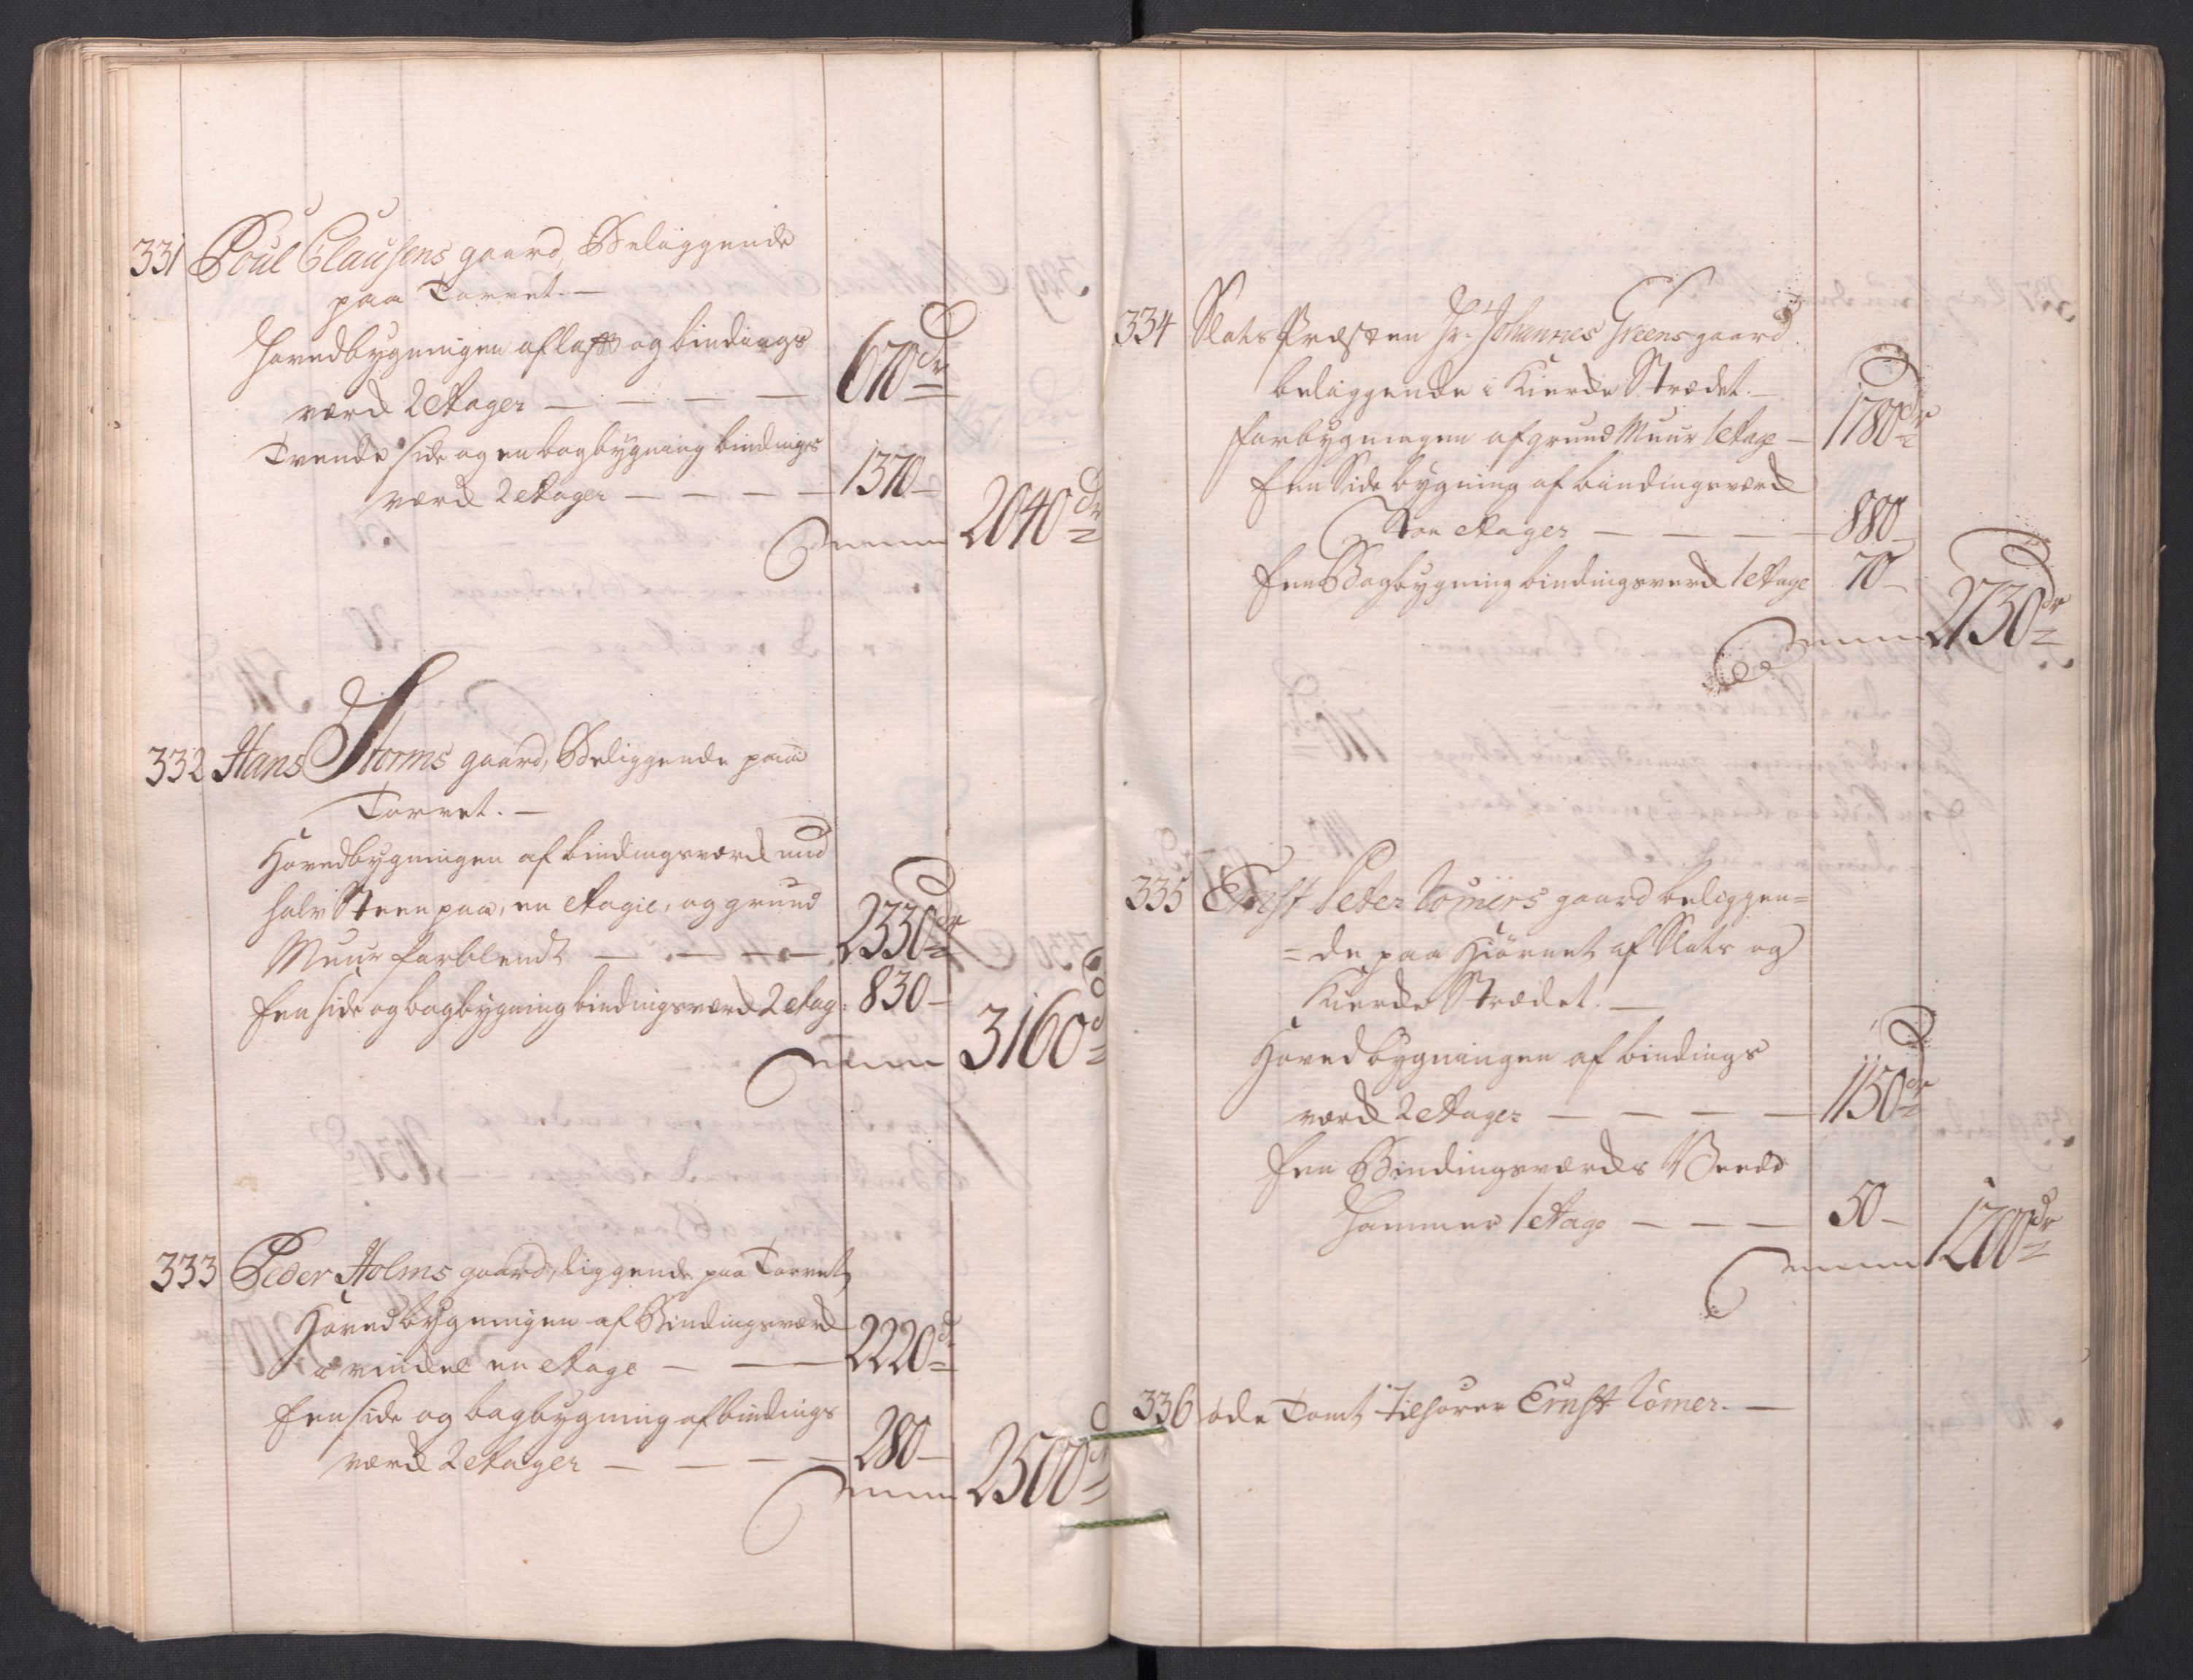 331 Poul Clausens gaard, Beliggende
paa Torvet. —
Hovedbygningen af laft og bindings
værck 2 Etager — — — — 670 dr
Tvende side og en bagbygning bindings
værck 2 etager — — — — 1370 —
Summa 2040 dr
332 Hans Storms gaard, Beliggende paa
Torvet. —
Hovedbygningen af bindingsværck med
halv Steen paa, en Etagie, og grund
Muur forblendt — — — 2330 dr
Een side og bagbygning bindingsværck 2 etag: 830 —
Summa 3160 d
333 Peder Holms gaard, liggende paa Torvet
Hovedbygningen af Bindingsværck
en etage — — 2220 d
Een side og bagbygning af bindings
værck 2 etager — — — — 280 —
Summa 2500 d
334 Slots Præsten Hr. Johannes Greens gaard.
beliggende i Kierke Strædet. —
Forbygningen af grund Muur 1 etage — 1780 dr
Een Side bygning af bindingsværck
Toe etager — — — — 880 —
Een Bagbygning bindingsverck 1 etage 70 —
Summa 2730 dr
335 Ernst Peter Römers gaard beliggen=
=de paa Hiörnet af Slots og
Kierke Strædet. —
Hovedbygningen af bindings
værck 2 etager — — — — 1150 dr
Een Bindingsværcks Veed
kammer 1 etage — — — 50 —
Summa 1200 dr
336 öde Tomt Tilhörer Ernst Römer. —